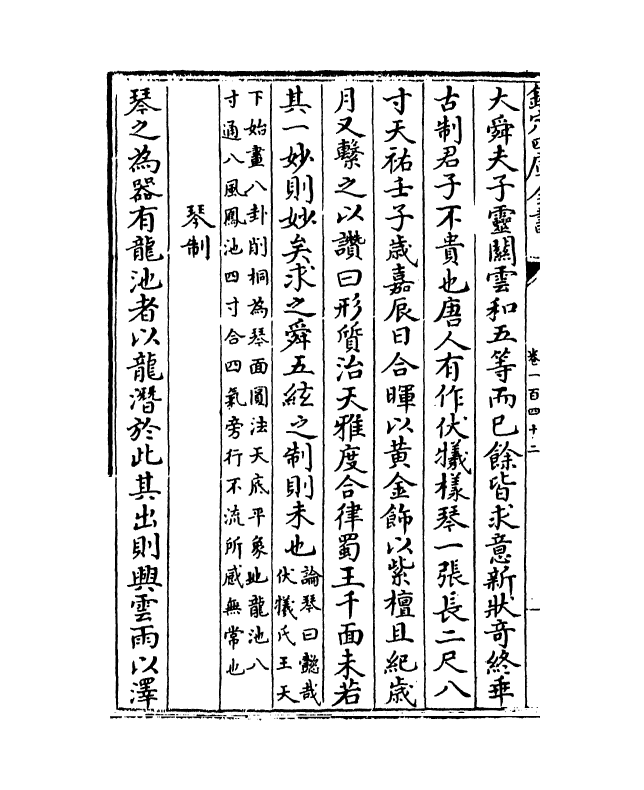 欽定四庫全書
卷一百四十二
大舜夫子靈關雲和五等而已餘皆求意新狀奇終乖
古制君子不貴也唐人有作伏犧樣琴一張長二尺八
寸天祐壬子歲嘉辰日合暉以黃金飾以紫檀且紀歲
月又繫之以讚曰形質治天雅度合律蜀王千面未若
其一妙則妙矣求之舜五絃之制則未也論琴曰懿哉
伏犧氏王天
下始畫八卦削桐為琴面圓法天底平象地龍池八
寸通八風鳳池四寸合四氣旁行不流所感無常也
琴制
琴之為器有龍池者以龍潛於此其出則興雲雨以澤